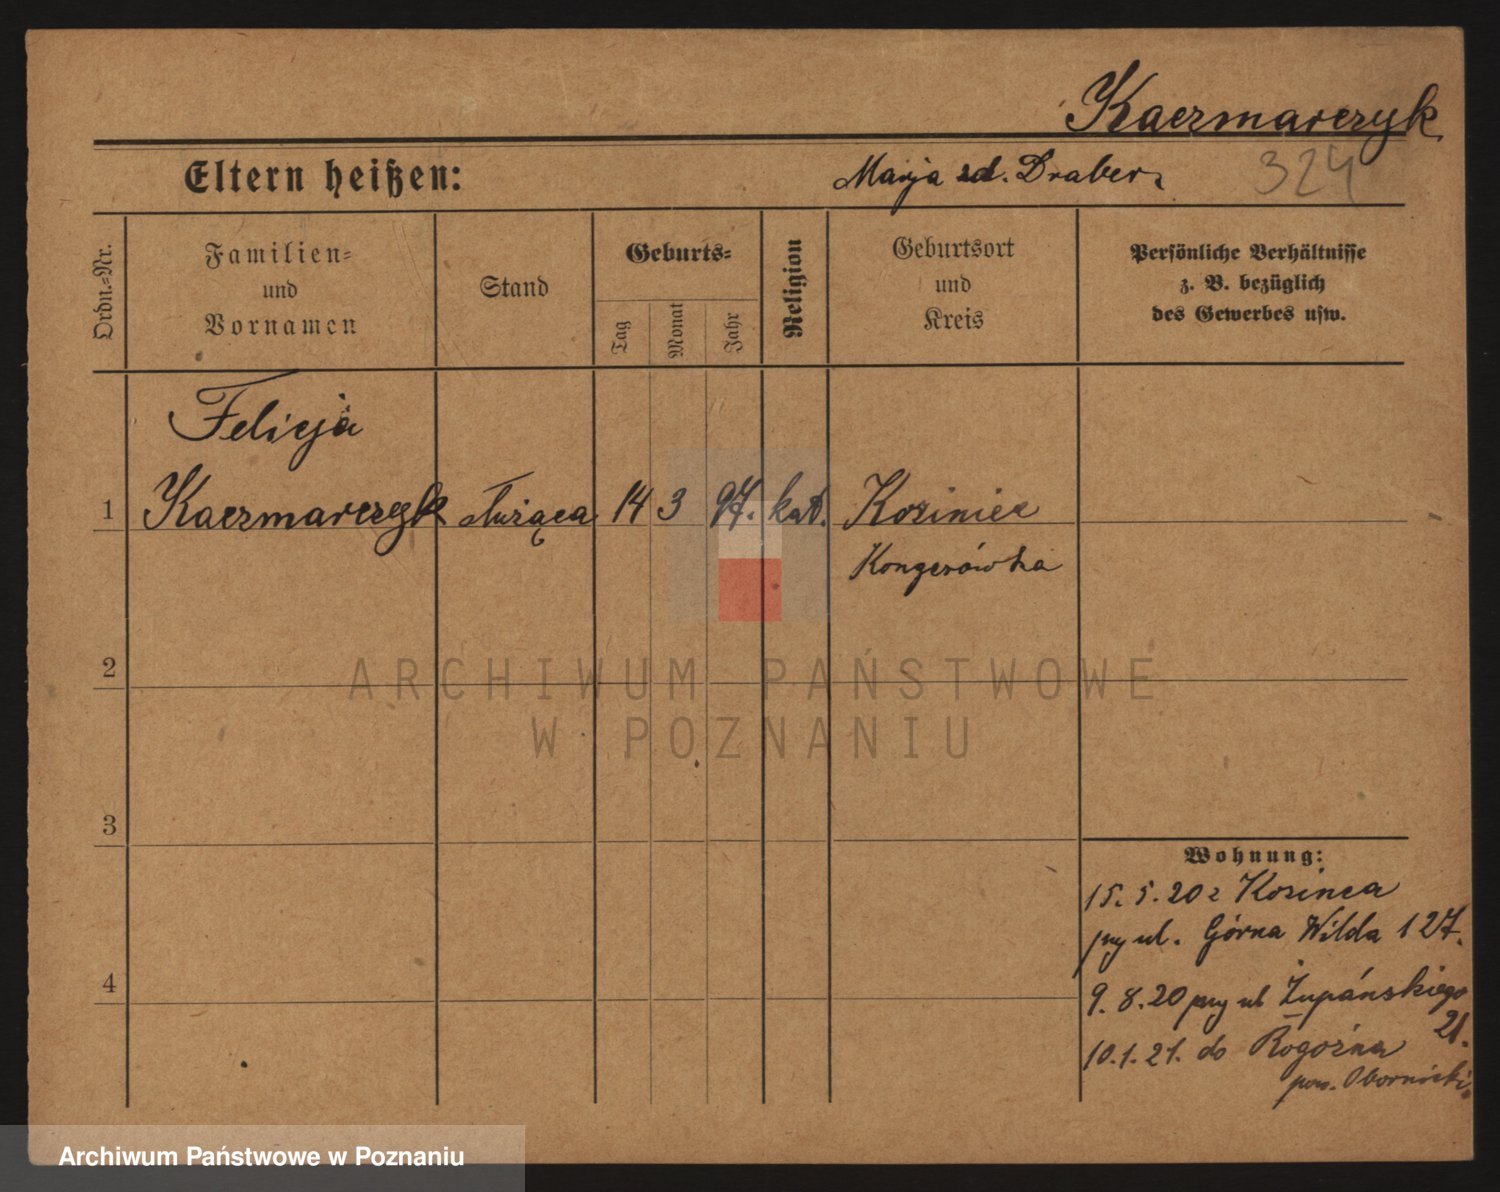 Kaczmarczyk
Eltern heißen:
Marja zd. Draber.
324
Ordn.=Nr.
Familien=
und
Vornamen
Stand
Geburts=
Tag
Monat
Jahr
Religion
Geburtsort
und
Kreis
Persönliche Verhältnisse
z. B. bezüglich
des Gewerbes usw.
Felicja
1 Kaczmarczyk służąca 14 3 97. kat. Koziniec
Kongresówka
2
ARCHIWUM PAŃSTWOWE
W POZNANIU
3
Wohnung:
15. 5. 20 z Kozińca
przy ul. Górna Wilda 127.
4
9. 8. 20 przy ul Żupańskiego
21.
10. 1. 21. do Rogoźna
pow. Obornicki.
Archiwum Państwowe w Poznaniu